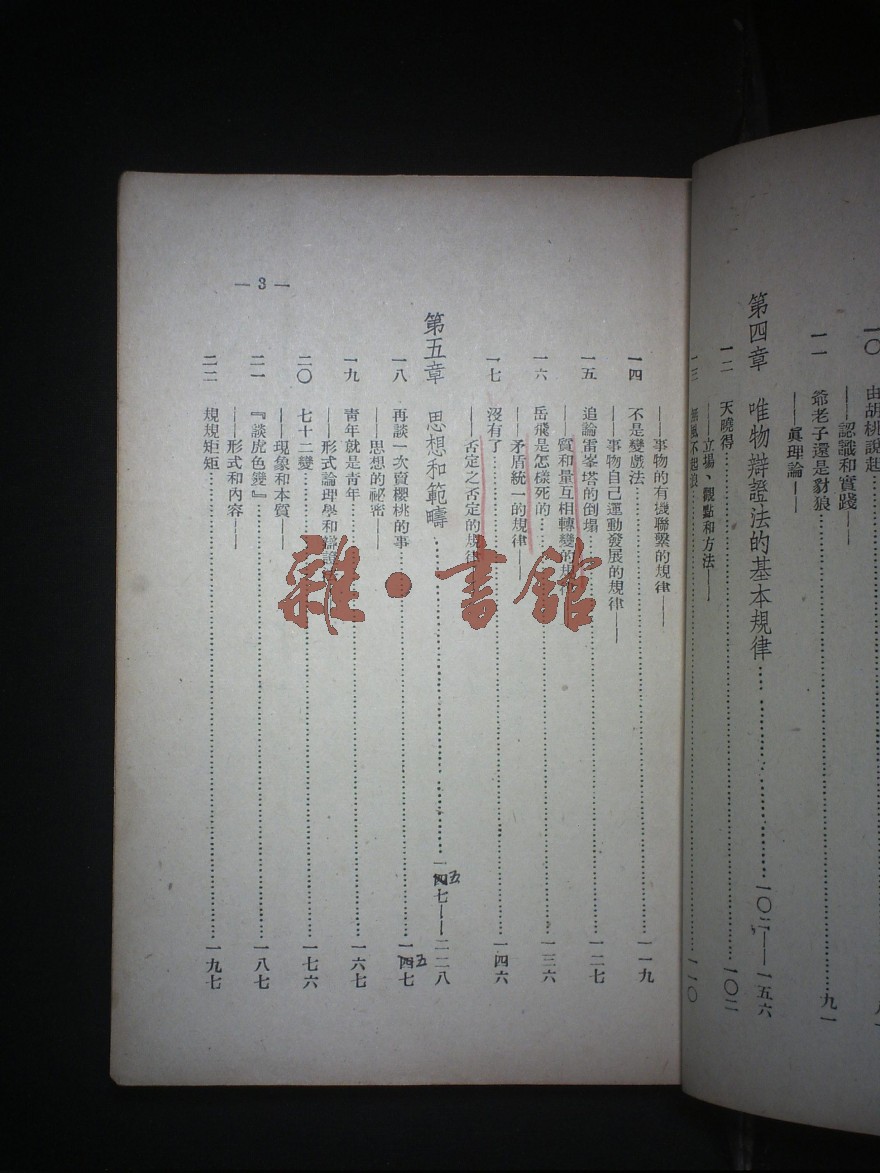 一〇 由胡桃說起
——認識和實踐——
一一 爺老子還是豺狼 九一
——眞理論——
第四章 唯物辯證法的基本規律 一〇二——一五六
一二 天曉得 一〇二
——立場、觀點和方法——
一三 無風不起浪 一一〇
——事物的有機聯繫的規律——
一四 不是變戲法 一一九
——事物自己運動發展的規律——
一五 追論雷峯塔的倒塌 一二七
——質和量互相轉變的規律
一六 岳飛是怎樣死的 一三六
——矛盾統一的規律——
一七 沒有了 一四六
——否定之否定的規律
第五章 思想和範疇 一五七——二二八
一八 再談一次賣櫻桃的事 一五七
——思想的祕密——
一九 靑年就是靑年 一六七
——形式論理學和辯證
二〇 七十二變 一七六
——現象和本質——
二一 『談虎色變』 一八七
——形式和內容——
二二 規規矩矩 一九七
— 3 —
雜·書館